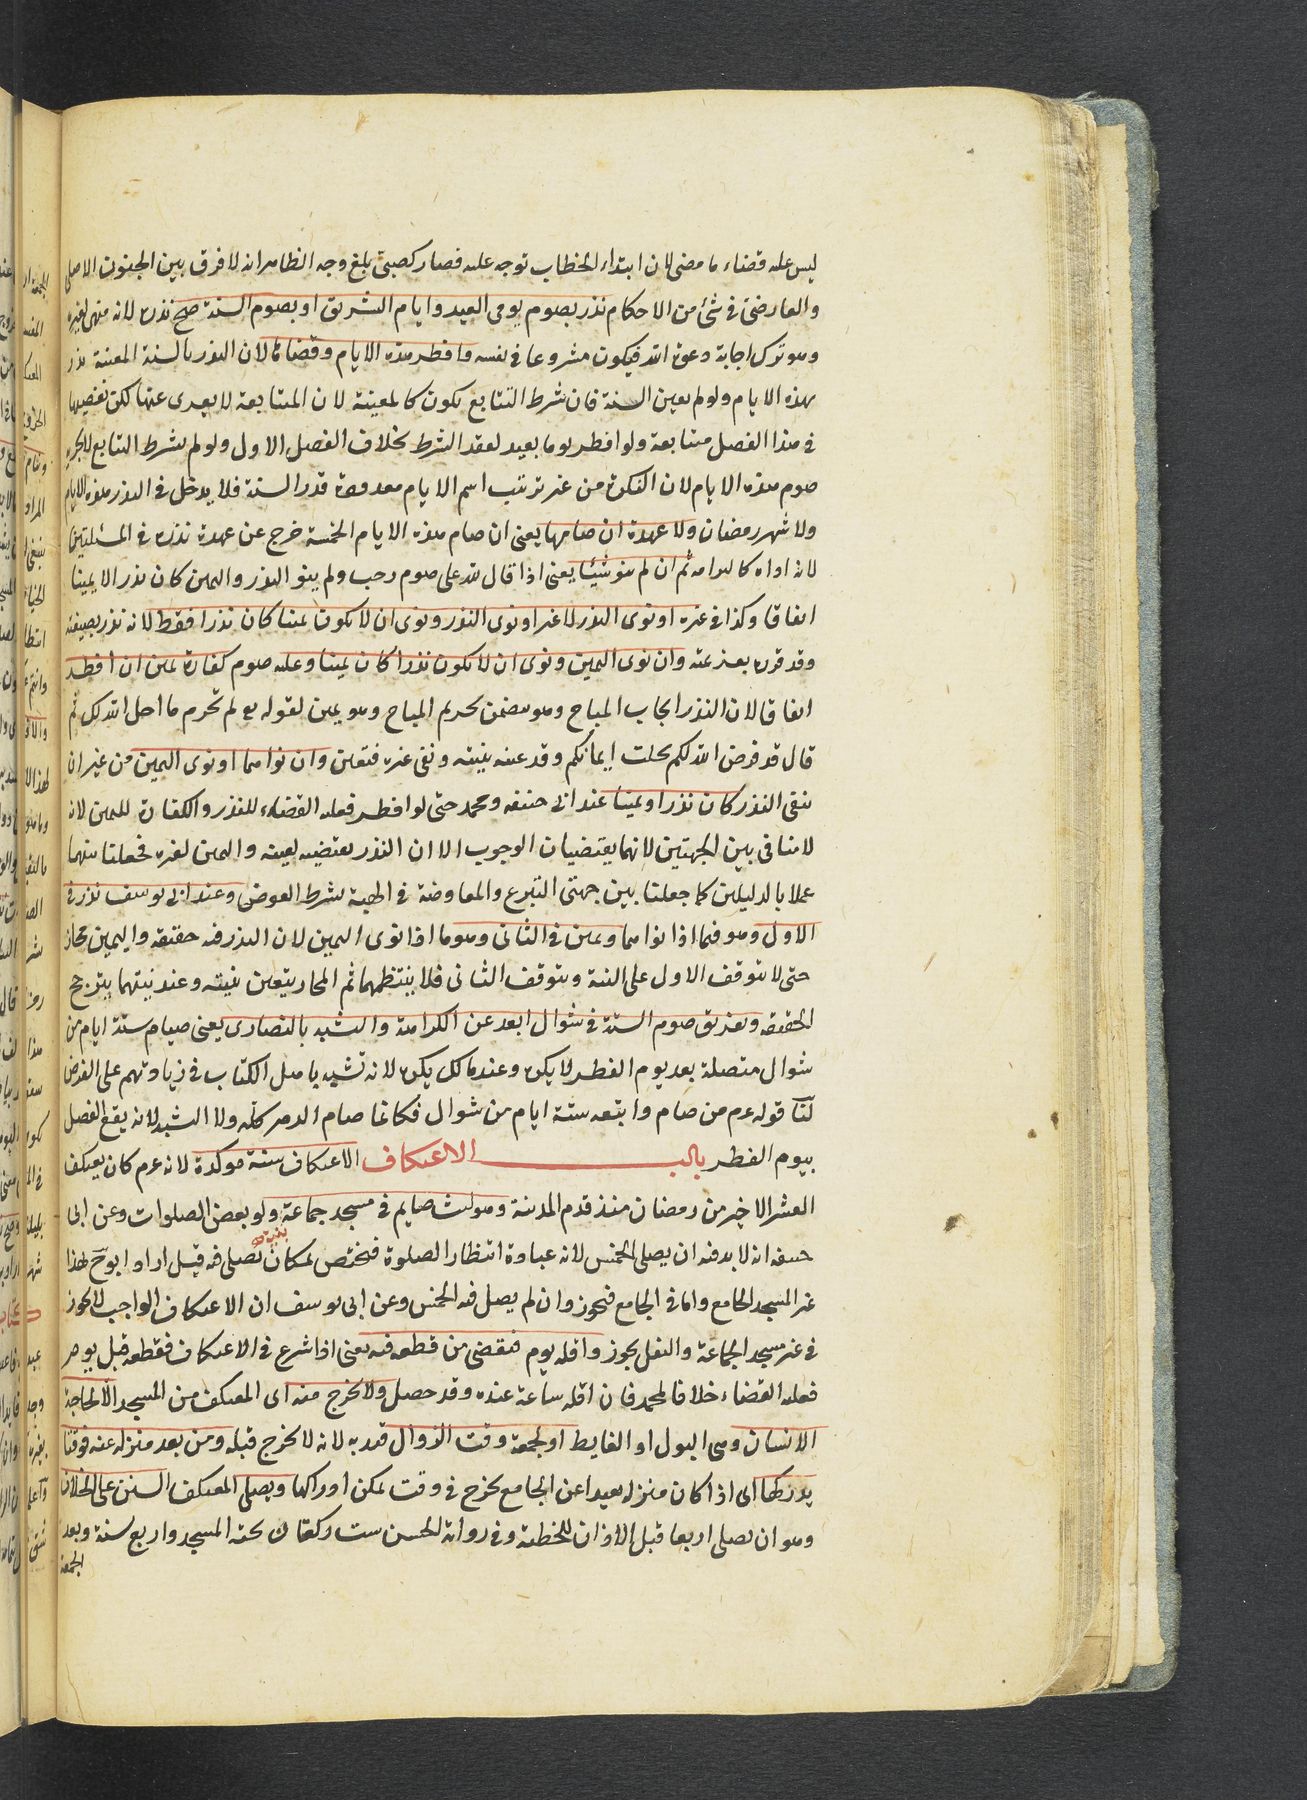 ليس عله قضاء ما مضى لان ابتداء الخطاب توجه عله فصار كصبى بلغ وجه الظاهر انه لا فرق بين الجنون الاصلى
والعارضى فى شئ من الاحكام نذر بصوم يومى العيد وايام التشريق او بصوم السنة صح نذره لانه منهى لغيره
وهو ترك اجابة دعوة الله فيكون مشروعا فى نفسه وافطر هذه الايام وقضاها لان النذر بالسنة المعينة نذر
بهذه الايام ولو لم يعين السنة فان شرط التتابع يكون كالمعينة لان المتابعة لا يعرى عنها لكن يقضيها
فى هذا الفصل متتابعة ولو افطر يوما يعيد لفقد الشرط بخلاف الفصل الاول ولو لم يشرط التتابع لا يجزيه
صوم هذه الايام لان النكرة من غير ترتيب اسم الايام معدودة قدر السنة فلا يدخل فى النذر هذه الايام
ولا شهر رمضان ولا عهدة ان صامها يعنى ان صام هذه الايام الخمسة خرج عن عهدة نذره فى المسئلتين
لانه اداه كما التزمه ثم ان لم ينو شيئا يعنى اذا قال لله على صوم رجب ولم ينو النذر واليمين كان نذرا لا يمينا
اتفاقا وكذا فى غيره او نوى النذر لا غير او نوى النذر ونوى ان لا يكون يمينا كان نذرا فقط لانه نذر بصيغته
وقد قرره بعزيمته وان نوى اليمين ونوى ان لا يكون نذرا كان يمينا وعله صوم كفارة يمين ان افطر
اتفاقا لان النذر ايجاب المباح وهو يتضمن تحريم المباح وهو يمين لقوله يع لم تحرم ما احل الله لك ثم
قال قد فرض الله لكم تحلت ايمانكم وقد عينه بنيته ونفى غيره فتعين وان نواهما او نوى اليمين من غير ان
ينفى النذر كان نذرا ويمينا عند ابى حنيفه ومحمد حتى لو افطر فعله القضاء للنذر والكفارة لليمين لانه
لا تنافى بين الجهتين لانهما يقتضيان الوجوب الا ان النذر يقتضيه لعينه واليمين لغيره فجعلنا بينهما
عملا بالدليلين كما جعلنا بين جهتى التبرع والمعاوضة فى الهبة بشرط العوض وعند ابى يوسف نذر فى
الاول وهو فيما اذا نواهما ويمين فى الثانى وهو ما اذا نوى اليمين لان النذر فيه حقيقة واليمين مجاز
حتى لا يتوقف الاول على النية ويتوقف الثانى فلا ينتظمهما ثم المجاز يتعين بنيته وعند نيتهما يترجح
الحقيقه وتفريق صوم الستة فى شوال ابعد عن الكراهة والتشبه بالنصارى يعنى صيام ستة ايام من
شوال متصلة بعد يوم الفطر لا يكره وعند مالك يكره لانه تشبه باهل الكتاب فى زيادتهم على الفرض
لنا قوله عم من صام واتبعه ستة ايام من شوال فكانما صام الدهر كله ولا التشبه لانه يقع الفصل
بيوم الفطر باب الاعتكاف الاعتكاف سنة موكدة لانه عم كان يعتكف
العشر الاخير من رمضان منذ قدم المدينة وهو لبث صايم فى مسجد جماعة ولو بعض الصلوات وعن ابى
حنيفه انه لا بد فيه ان يصلى الخمس لانه عبادة انتظار الصلوة فيختص بمكان يصلى فيه قيل اراد ابو ح بهذا
غير المسجد الجامع واما فى الجامع فيجوز وان لم يصل فيه الخمس وعن ابى يوسف ان الاعتكاف الواجب لا يجوز
فى غير مسجد الجماعة والنفل يجوز واقله يوم فيقضى من قطعه فيه يعنى اذا شرع فى الاعتكاف فقطعه قبل يوم
فعله القضاء خلافا لمحمد فان اقله ساعة عنده وقد حصل ولا يخرج منه اى المعتكف من المسجد الا لحاجة
الانسان وهى البول او الغايط او لجمعة وقت الزوال قيد به لانه لا يخرج قبله ومن بعد منزله عنه فوقتا
يدركها اى اذا كان منزله بعيدا عن الجامع يخرج فى وقت يمكن ادراكها ويصلى المعتكف السنن على الخلاف
وهو ان يصلى اربعا قبل الاذان للخطبة وفى رواية الحسن ست ركعات تحية المسجد واربع سنة وبعد
الجمعة